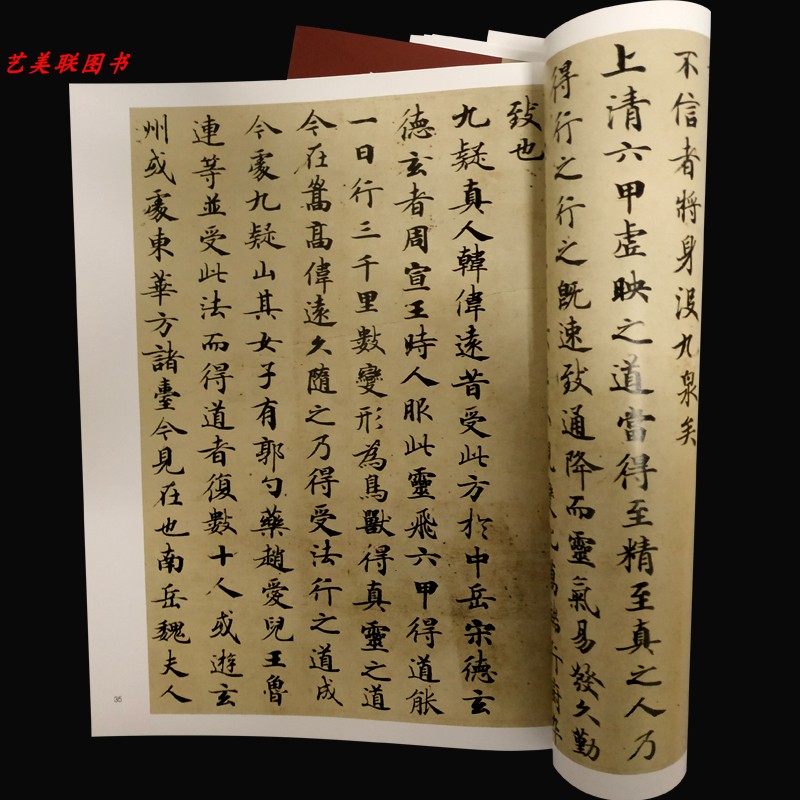 艺美联图书
不信者將身没九泉矣
上清六甲虛映之道當得至精至真之人乃
得行之行之既速致通降而靈氣易發久勤
致也
九疑真人韓偉遠昔受此方於中岳宋德玄
德玄者周宣王時人服此靈飛六甲得道能
一日行三千里數變形為鳥獸得真靈之道
今在嵩高偉遠久隨之乃得受法行之道成
今處九疑山其女子有郭勺藥趙愛兒王魯
連等並受此法而得道者復數十人或遊玄
州或處東華方諸臺今見在也南岳魏夫人
35